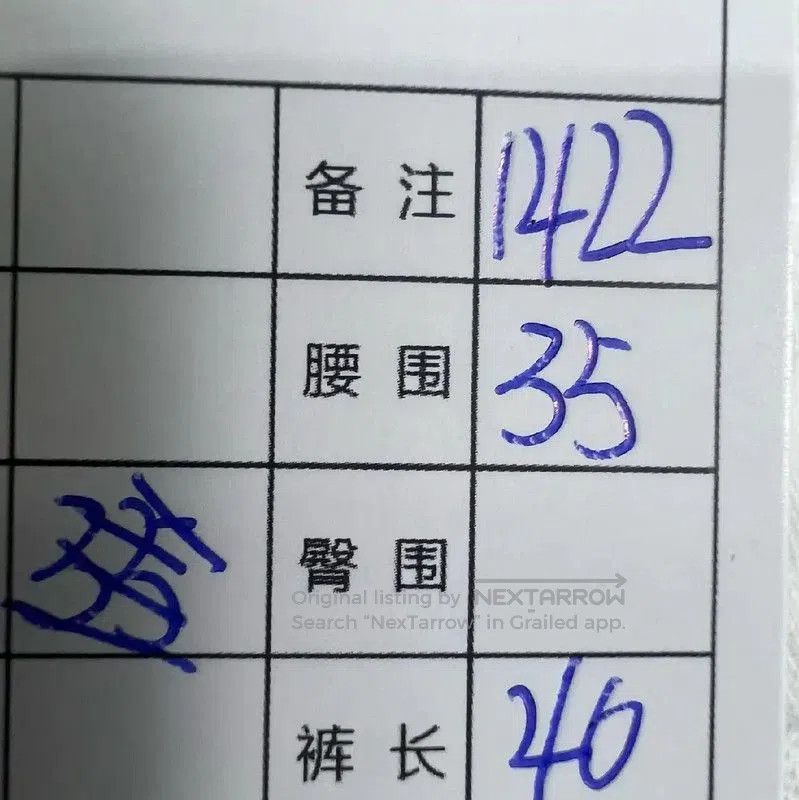 备注 1422
腰围 35
臀围
Original listing by NEXTARROW
Search "NexTarrow" in Grailed app.
裤长 40